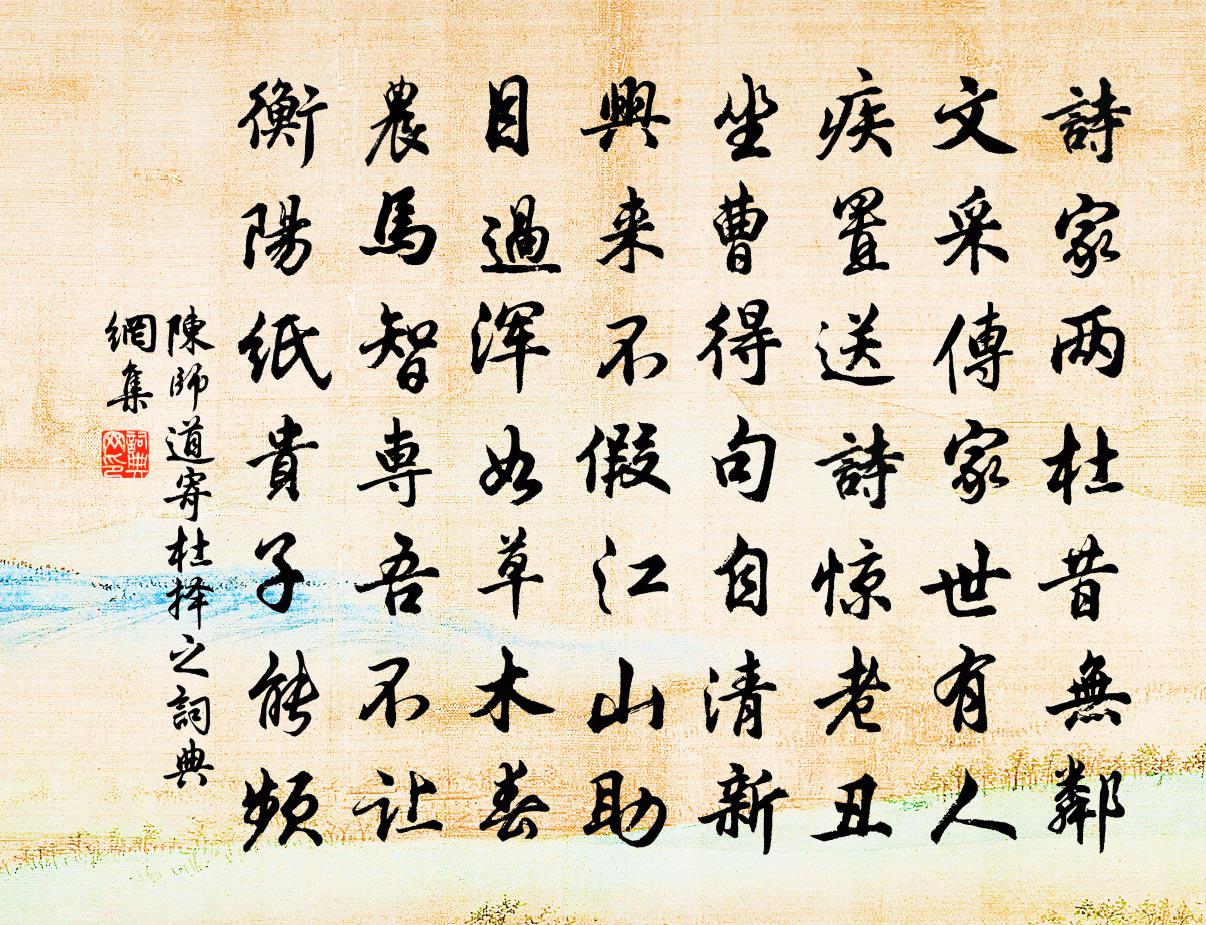 詩家两杜昔無鄰
文采傳家世有人
疾置送詩惊老丑
坐曹得句自清新
興来不假江山助
目過浑如草木春
農馬智専吾不让
衡陽紙貴子能頻
陳師道寄杜择之詞典
網集
詞典
网印